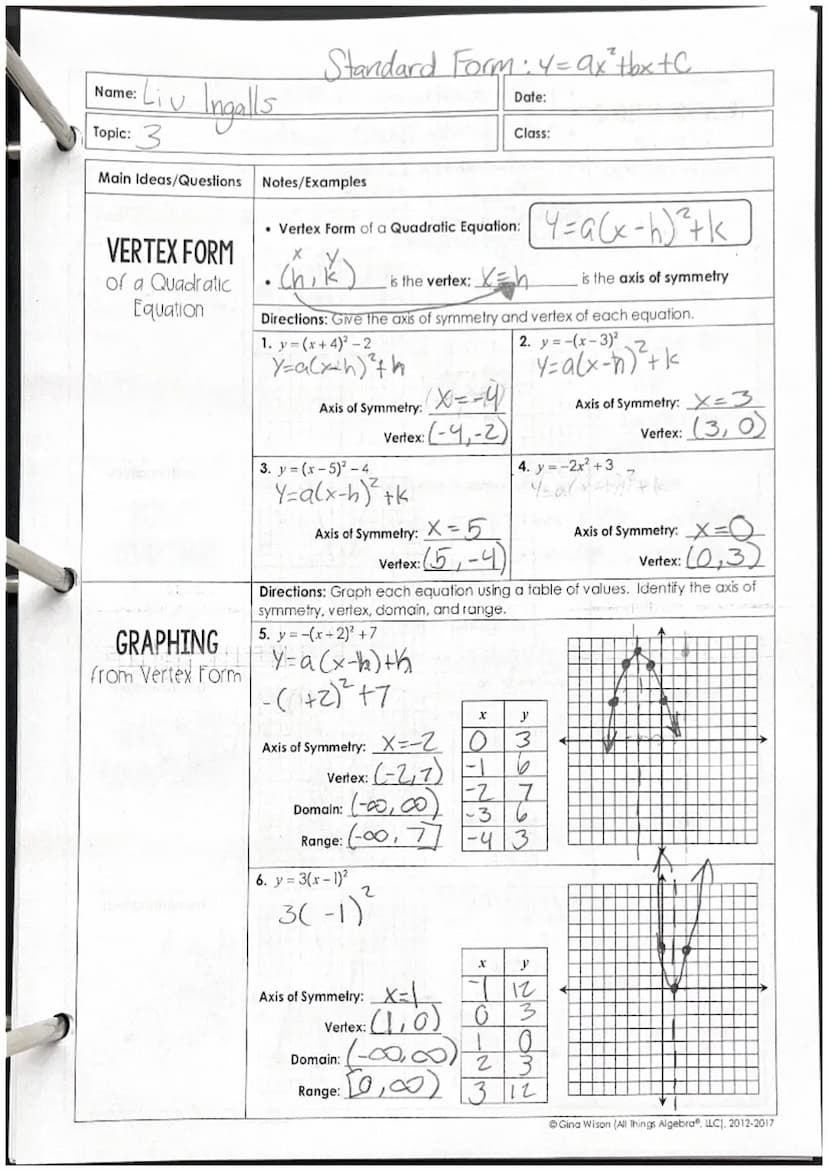 Standard Form: y=ax²+bx+c
Name: Liv Ingalls
Date:
Topic: 3
Class:
Main Ideas/Questions
Notes/Examples
VERTEX FORM
of a Quadratic
Equation
• Vertex Form of a Quadratic Equation: y=a(x-h)²+k
x y
• (h,k) is the vertex; x=h is the axis of symmetry
Directions: Give the axis of symmetry and vertex of each equation.
1. y = (x + 4)² – 2
y=a(x-h)²+h
Axis of Symmetry: x=-4
Vertex: (-4,-2)
2. y = –(x – 3)²
y=a(x-h)²+k
Axis of Symmetry: x=3
Vertex: (3,0)
3. y = (x – 5)² – 4
y=a(x-h)²+k
Axis of Symmetry: x=5
Vertex: (5,-4)
4. y = –2x² + 3
Axis of Symmetry: x=0
Vertex: (0,3)
GRAPHING
from Vertex Form
Directions: Graph each equation using a table of values. Identify the axis of
symmetry, vertex, domain, and range.
5. y = –(x + 2)² + 7
y=a(x-h)+k
-( +2)²+7
Axis of Symmetry: x=-2
Vertex: (-2,7)
Domain: (-∞,∞)
Range: (-∞,7]
x y
0 3
-1 6
-2 7
-3 6
-4 3
6. y = 3(x – 1)²
3( -1)²
Axis of Symmetry: x=1
Vertex: (1,0)
Domain: (-∞,∞)
Range: [0,∞)
x y
-1 12
0 3
1 0
2 3
3 12
© Gina Wilson (All Things Algebra®, LLC), 2012-2017